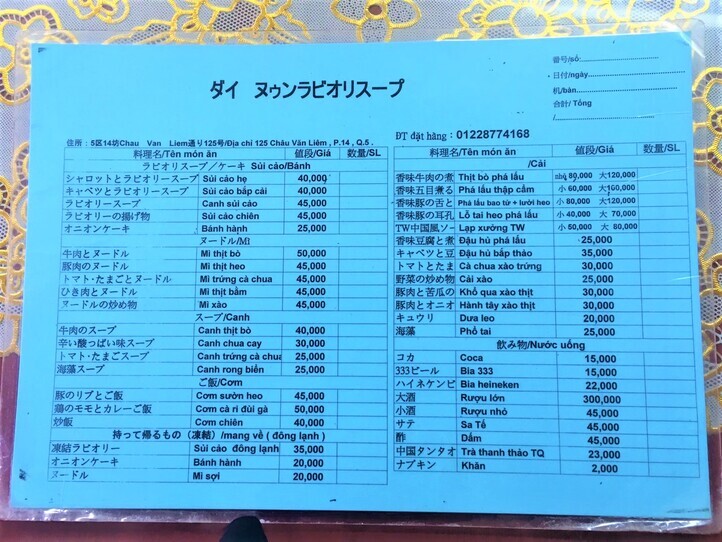 ダイ ヌゥンラビオリスープ
番号/số:
日付/ngày
机/bàn
合計/ Tổng
住所：5区14坊Chau Van Liem通り125号/Địa chỉ 125 Châu Văn Liêm , P.14 , Q.5 .
料理名/Tên món ăn 値段/Giá 数量/SL
ラビオリスープ／ケーキ Sủi cảo/Bánh
シャロットとラビオリスープ Sủi cảo hẹ 40,000
キャベツとラビオリスープ Sủi cảo bắp cải 40,000
ラビオリスープ Canh sủi cảo 45,000
ラビオリーの揚げ物 Sủi cảo chiên 45,000
オニオンケーキ Bánh hành 25,000
ヌードル/Mì
牛肉とヌードル Mì thịt bò 50,000
豚肉のヌードル Mì thịt heo 45,000
トマト·たまごとヌードル Mì trứng cà chua 45,000
ひき肉とヌードル Mì thịt bằm 45,000
ヌードルの炒め物 Mì xào 45,000
スープ/Canh
牛肉のスープ Canh thịt bò 40,000
辛い酸っぱい味スープ Canh chua cay 30,000
トマト·たまごスープ Canh trứng cà chua 25,000
海藻スープ Canh rong biển 25,000
ご飯/Cơm
豚のリブとご飯 Cơm sườn heo 45,000
鶏のモモとカレーご飯 Cơm cà ri đùi gà 50,000
炒飯 Cơm chiên 40,000
持って帰るもの（凍結）/mang về ( đông lạnh )
凍結ラビオリー Sủi cảo đông lạnh 35,000
オニオンケーキ Bánh hành 20,000
ヌードル Mì sợi 20,000
ĐT đặt hàng : 01228774168
料理名/Tên món ăn 値段/Giá 数量/SL
/Cải
香味牛肉の煮 Thịt bò phá lấu nhỏ 80,000 大120,000
香味五目煮る Phá lấu thập cẩm 小 60,000 大100,000
香味豚の舌と Phá lấu bao tử + lưỡi heo 小 80,000 大120,000
香味豚の耳孔 Lỗ tai heo phá lấu 小 40,000 大 70,000
TW中国風ソー Lạp xưởng TW 小 50,000 大 80,000
香味豆腐と煮 Đậu hủ phá lấu 25,000
キャベツと豆 Đậu hủ bắp thảo 35,000
トマトとたま Cà chua xào trứng 30,000
野菜の炒め物 Cải xào 25,000
豚肉と苦瓜の Khổ qua xào thịt 30,000
豚肉とオニオ Hành tây xào thịt 30,000
キュウリ Dưa leo 20,000
海藻 Phổ tai 25,000
飲み物/Nước uống
コカ Coca 15,000
333ビール Bia 333 15,000
ハイネケンビ Bia heineken 22,000
大酒 Rượu lớn 300,000
小酒 Rượu nhỏ 45,000
サテ Sa Tế 45,000
酢 Dấm 45,000
中国タンタオ Trà thanh thảo TQ 23,000
ナプキン Khăn 2,000